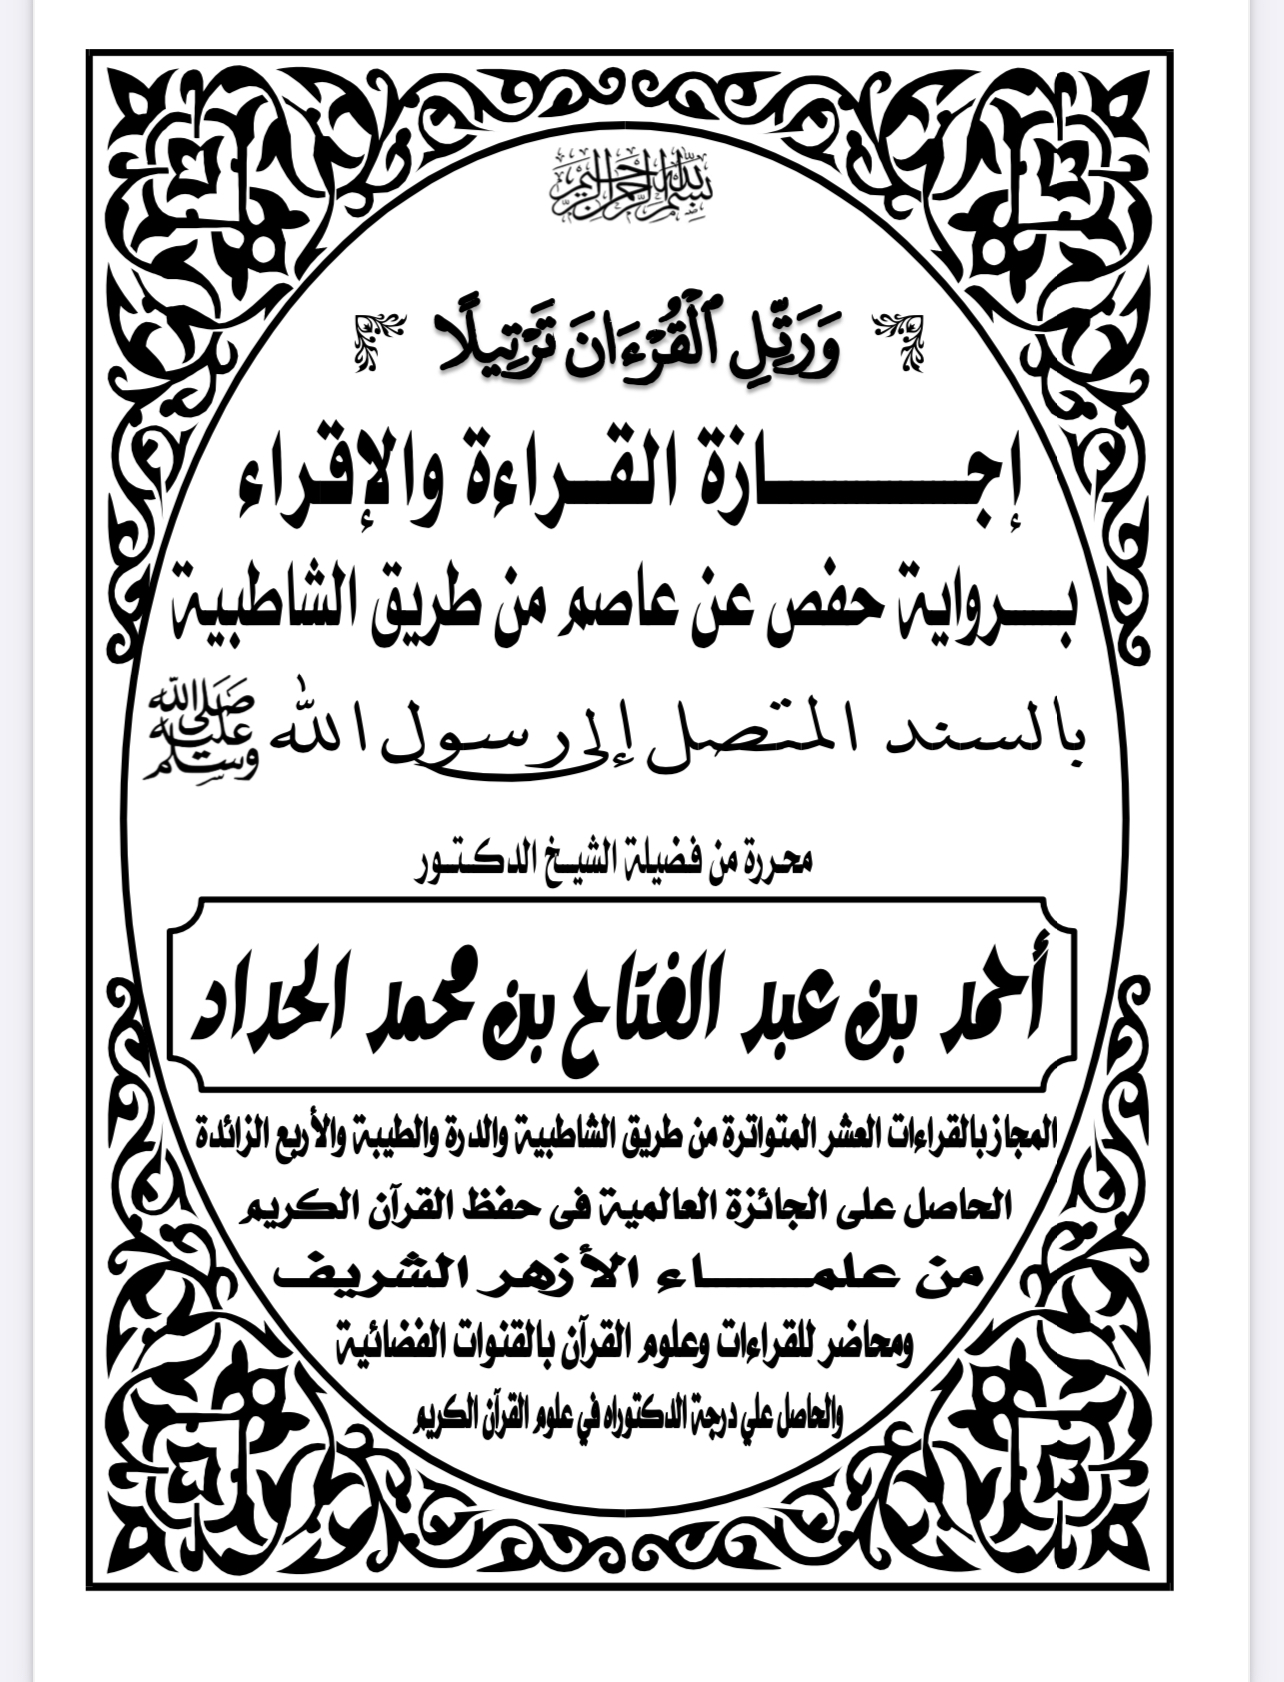 بسم الله الرحمن الرحيم
وَرَتِّلِ ٱلْقُرْءَانَ تَرْتِيلًا
إجـــــــازة القـــراءة والإقراء
بـــرواية حفص عن عاصم من طريق الشاطبية
بالسند المتصل إلى رسول الله صلى الله عليه وسلم
محررة من فضيلة الشيـخ الدكـتـور
أحمد بن عبد الفتاح بن محمد الحداد
المجاز بالقراءات العشر المتواترة من طريق الشاطبية والدرة والطيبة والأربع الزائدة
الحاصل على الجائزة العالمية فى حفظ القرآن الكريم
من علمـــــاء الأزهر الشريف
ومحاضر للقراءات وعلوم القرآن بالقنوات الفضائية
والحاصل علي درجة الدكتوراه في علوم القرآن الكريم